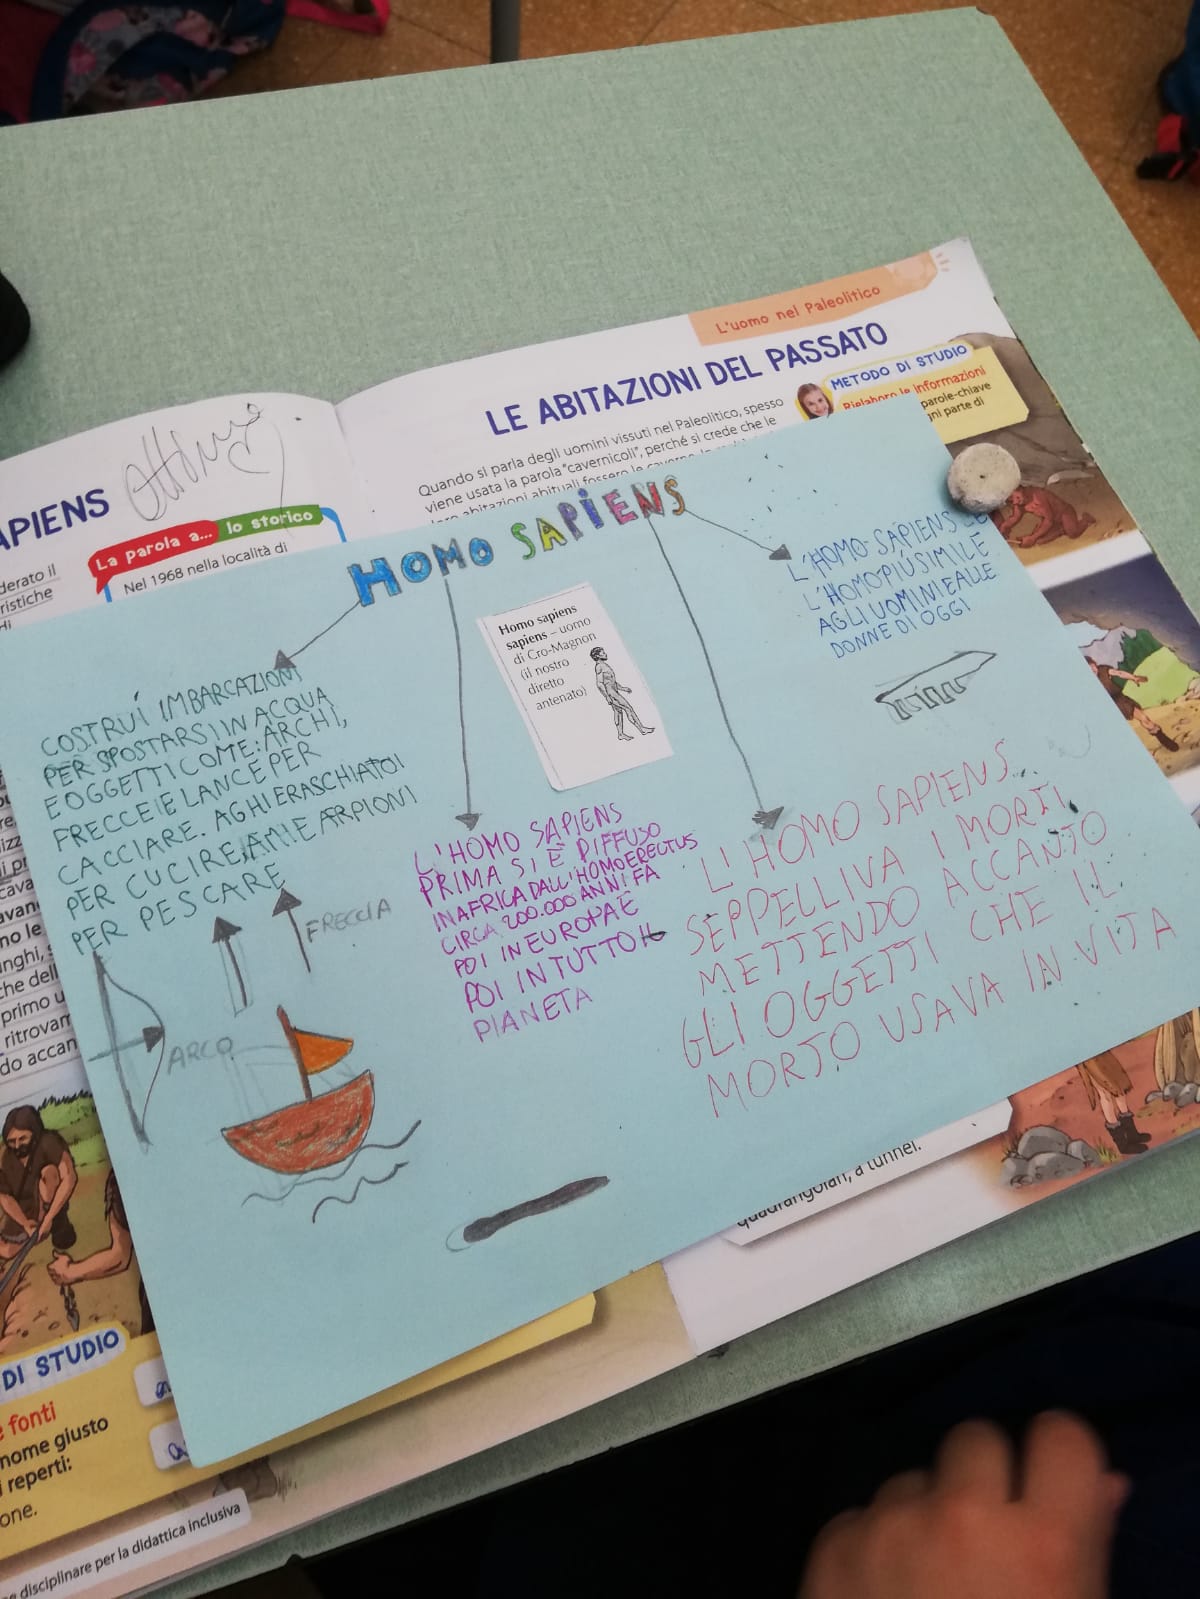 L'uomo nel Paleolitico
LE ABITAZIONI DEL PASSATO
METODO DI STUDIO
Rielaboro le informazioni
parole-chiave
gni parte di
Quando si parla degli uomini vissuti nel Paleolitico, spesso
viene usata la parola "cavernicoli", perché si crede che le
abitazioni abituali fossero le
APIENS
La parola a... lo storico
Nel 1968 nella località di
derato il
ristiche
HOMO SAPIENS
Homo sapiens
sapiens – uomo
di Cro-Magnon
(il nostro
diretto
antenato)
L'HOMO SAPIENS È
L'HOMO PIÚ SIMILE
AGLI UOMINI E ALLE
DONNE DI OGGI
COSTRUÍ IMBARCAZIONI
PER SPOSTARSI IN ACQUA
E OGGETTI COME: ARCHI,
FRECCE E LANCE PER
CACCIARE. AGHI E RASCHIATOI
PER CUCIRE, AMI E ARPIONI
PER PESCARE
FRECCIA
ARCO
L'HOMO SAPIENS
PRIMA SI È DIFFUSO
IN AFRICA DALL'HOMO ERECTUS
CIRCA 200.000 ANNI FA
POI IN EUROPA E
POI IN TUTTO IL
PIANETA
L'HOMO SAPIENS
SEPPELLIVA I MORTI,
METTENDO ACCANTO
GLI OGGETTI CHE IL
MORTO USAVA IN VITA
cava
avan
no le
nghi, s
che del
primo u
ritrovam
do accan
quadrangolari, a tunnel.
DI STUDIO
e fonti
nome giusto
i reperti:
one.
e disciplinare per la didattica inclusiva